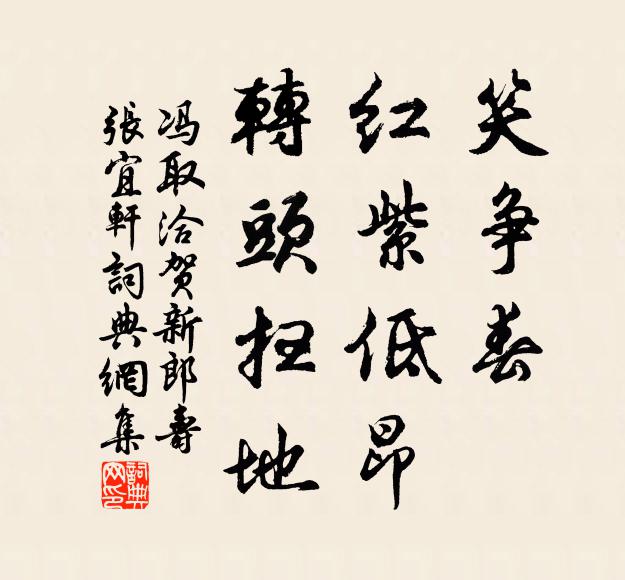 笑争春
红紫低昂
轉頭扫地
冯取洽贺新郎壽
張宜軒詞典網集
詞典网印